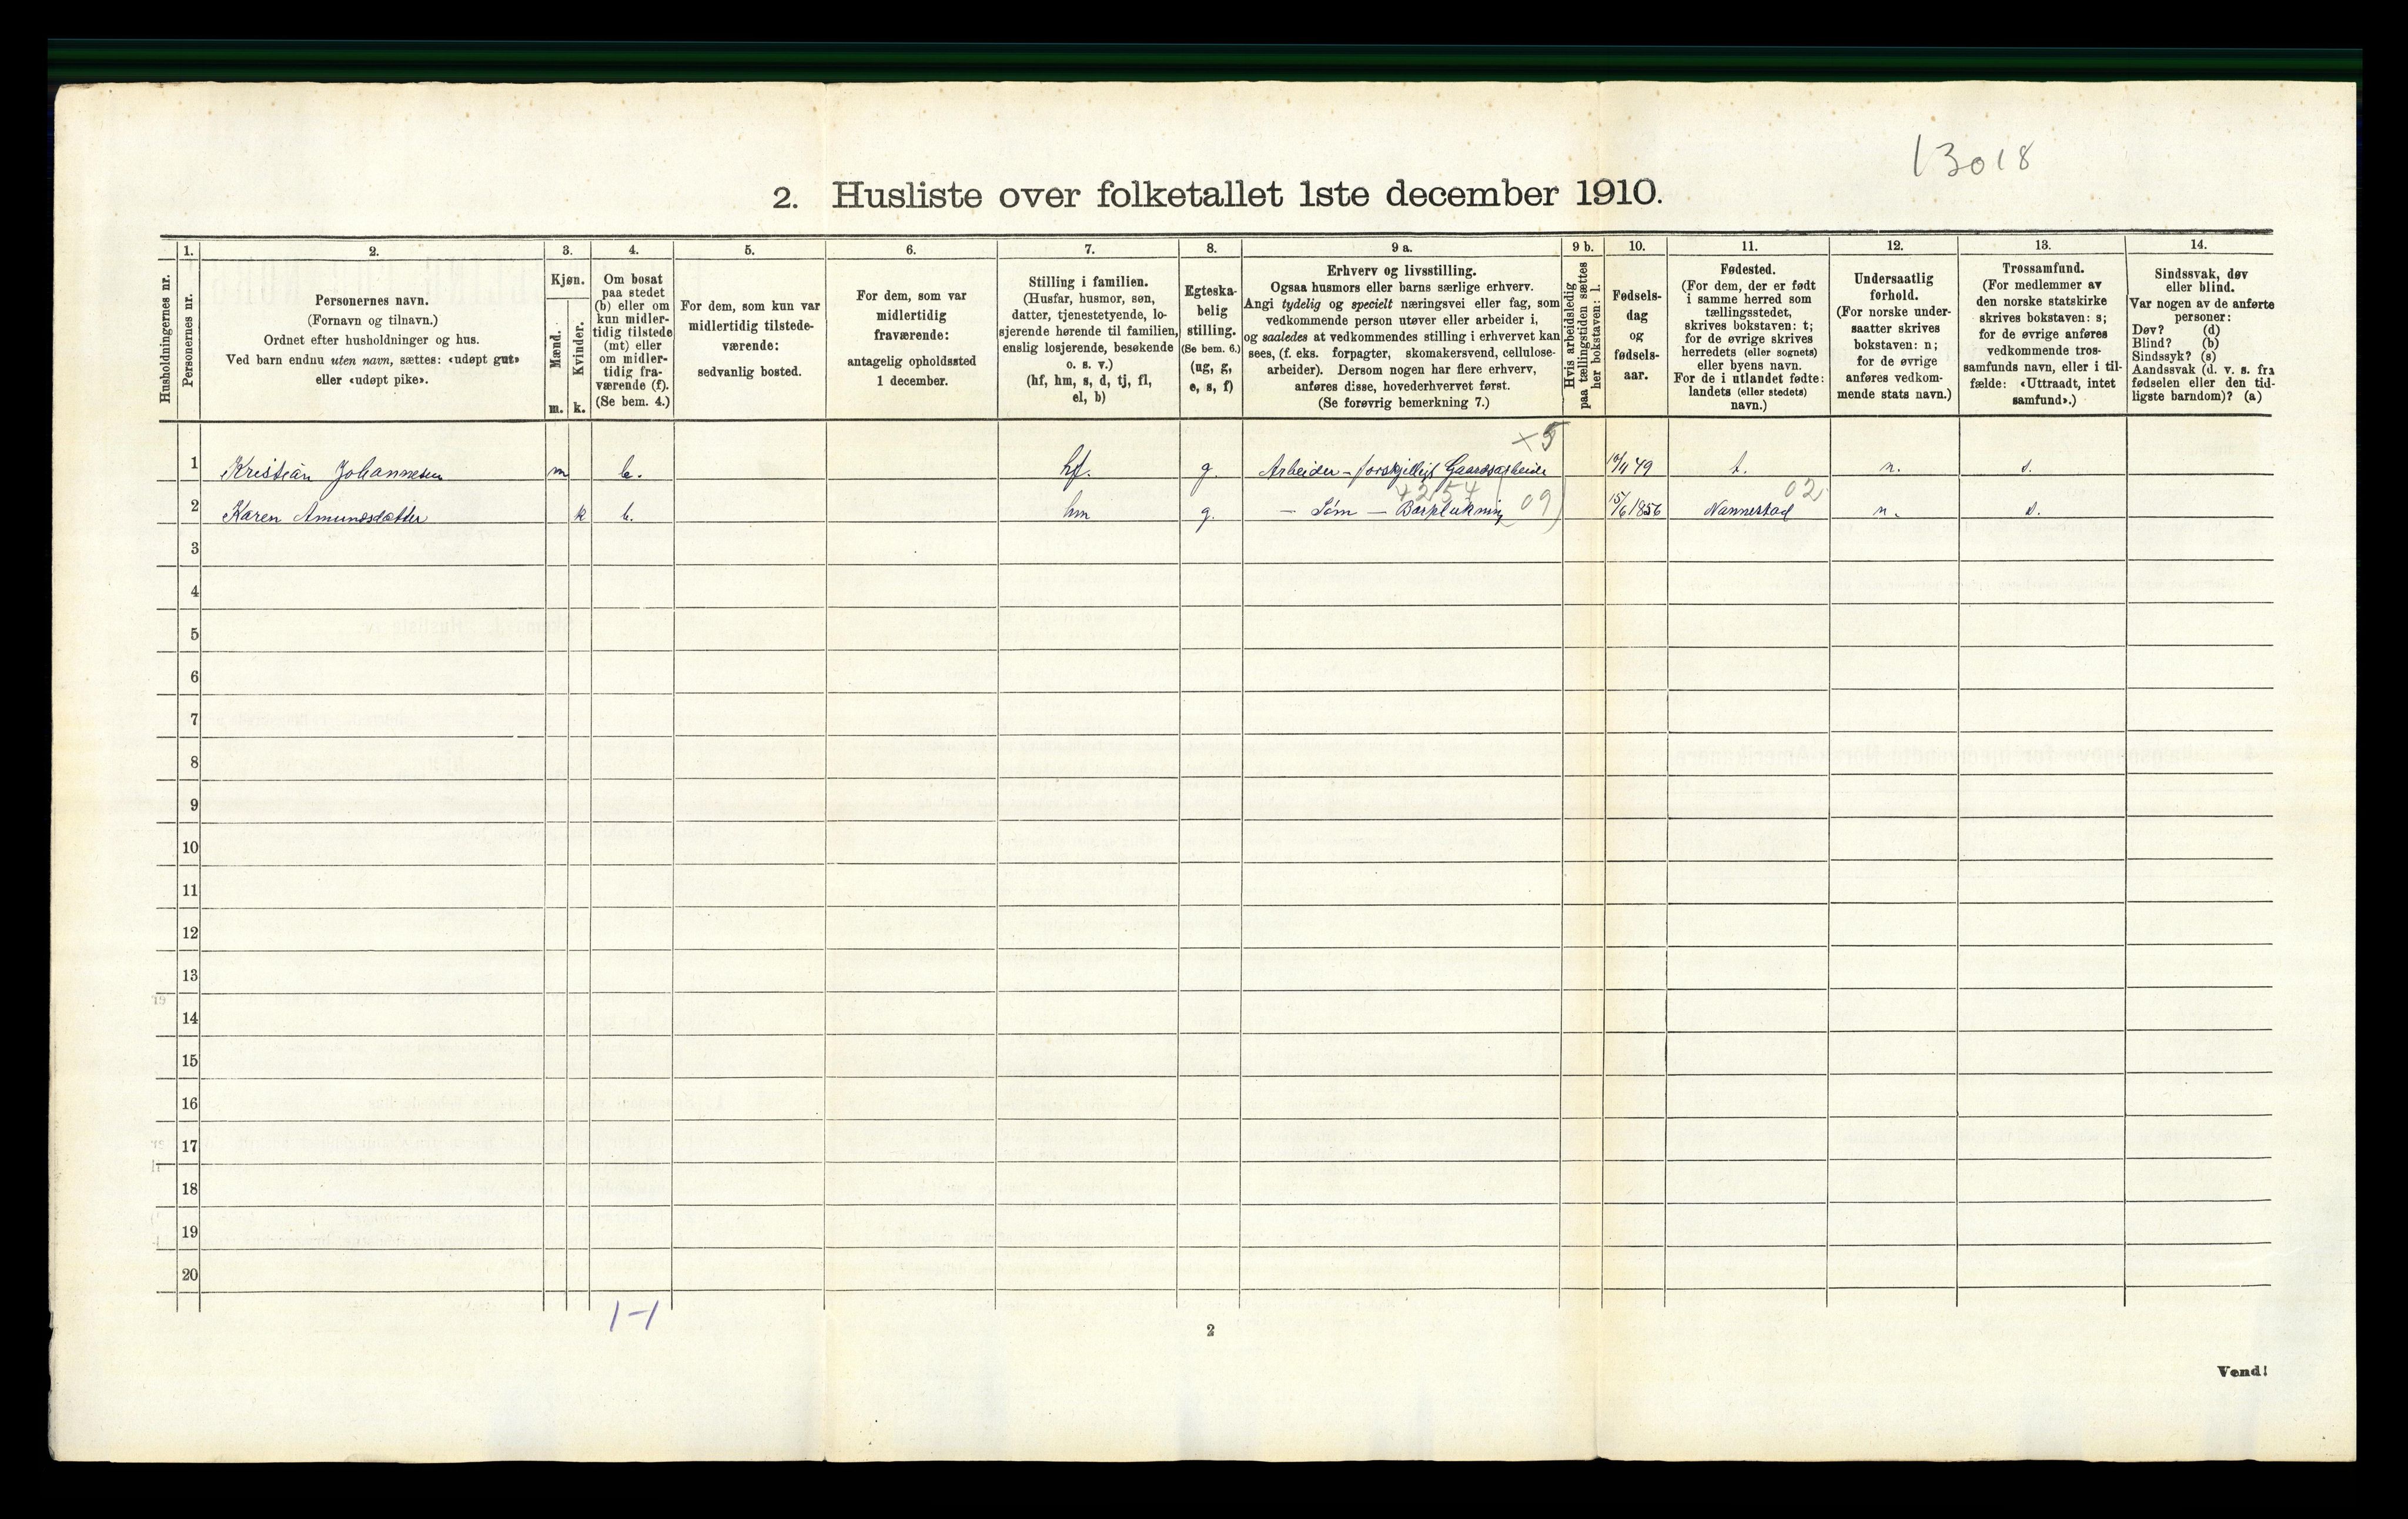 13018
2. Husliste over folketallet 1ste december 1910.
Husholdningernes nr.
1.
Personernes nr.
2.
Personernes navn.
(Fornavn og tilnavn.)
Ordnet efter husholdninger og hus.
Ved barn endnu uten navn, sættes: «udøpt gut»
eller «udøpt pike».
3.
Kjøn.
Mænd.
Kvinder.
m. k.
4.
Om bosat
paa stedet
(b) eller om
kun midler-
tidig tilstede
(mt) eller
om midler-
tidig fra-
værende (f).
(Se bem. 4.)
5.
For dem, som kun var
midlertidig tilstede-
værende:
sedvanlig bosted.
6.
For dem, som var
midlertidig
fraværende:
antagelig opholdssted
1 december.
7.
Stilling i familien.
(Husfar, husmor, søn,
datter, tjenestetyende, lo-
sjerende hørende til familien,
enslig losjerende, besøkende
o. s. v.)
(hf, hm, s, d, tj, fl,
el, b)
8.
Egteska-
belig
stilling.
(Se bem. 6.)
(ug, g,
e, s, f)
9 a.
Erhverv og livsstilling.
Ogsaa husmors eller barns særlige erhverv.
Angi tydelig og specielt næringsvei eller fag, som
vedkommende person utøver eller arbeider i,
og saaledes at vedkommendes stilling i erhvervet kan
sees, (f. eks. forpagter, skomakersvend, cellulose-
arbeider). Dersom nogen har flere erhverv,
anføres disse, hovederhvervet først.
(Se forøvrig bemerkning 7.)
9 b.
Hvis arbeidsledig
paa tællingstiden sættes
her bokstaven: l.
10.
Fødsels-
dag
og
fødsels-
aar.
11.
Fødested.
(For dem, der er født
i samme herred som
tællingsstedet,
skrives bokstaven: t;
for de øvrige skrives
herredets (eller sognets)
eller byens navn.
For de i utlandet fødte:
landets (eller stedets)
navn.)
12.
Undersaatlig
forhold.
(For norske under-
saatter skrives
bokstaven: n;
for de øvrige
anføres vedkom-
mende stats navn.)
13.
Trossamfund.
(For medlemmer av
den norske statskirke
skrives bokstaven: s;
for de øvrige anføres
vedkommende tros-
samfunds navn, eller i til-
fælde: «Uttraadt, intet
samfund».)
14.
Sindssvak, døv
eller blind.
Var nogen av de anførte
personer:
Døv? (d)
Blind? (b)
Sindssyk? (s)
Aandssvak (d. v. s. fra
fødselen eller den tid-
ligste barndom)? (a)
×5
1 Kristian Johannesen m b. hf. g. Arbeider - forskjelligt Gaardsarbeide 79 t. n. s.
4254 02
2 Karen Amundsdatter k b. hm g. - Søm - Bærplukning (09) 15/6 1856 Nannestad n. s.
3
4
5
6
7
8
9
10
11
12
13
14
15
16
17
18
19
20
1-1
2
Vend!